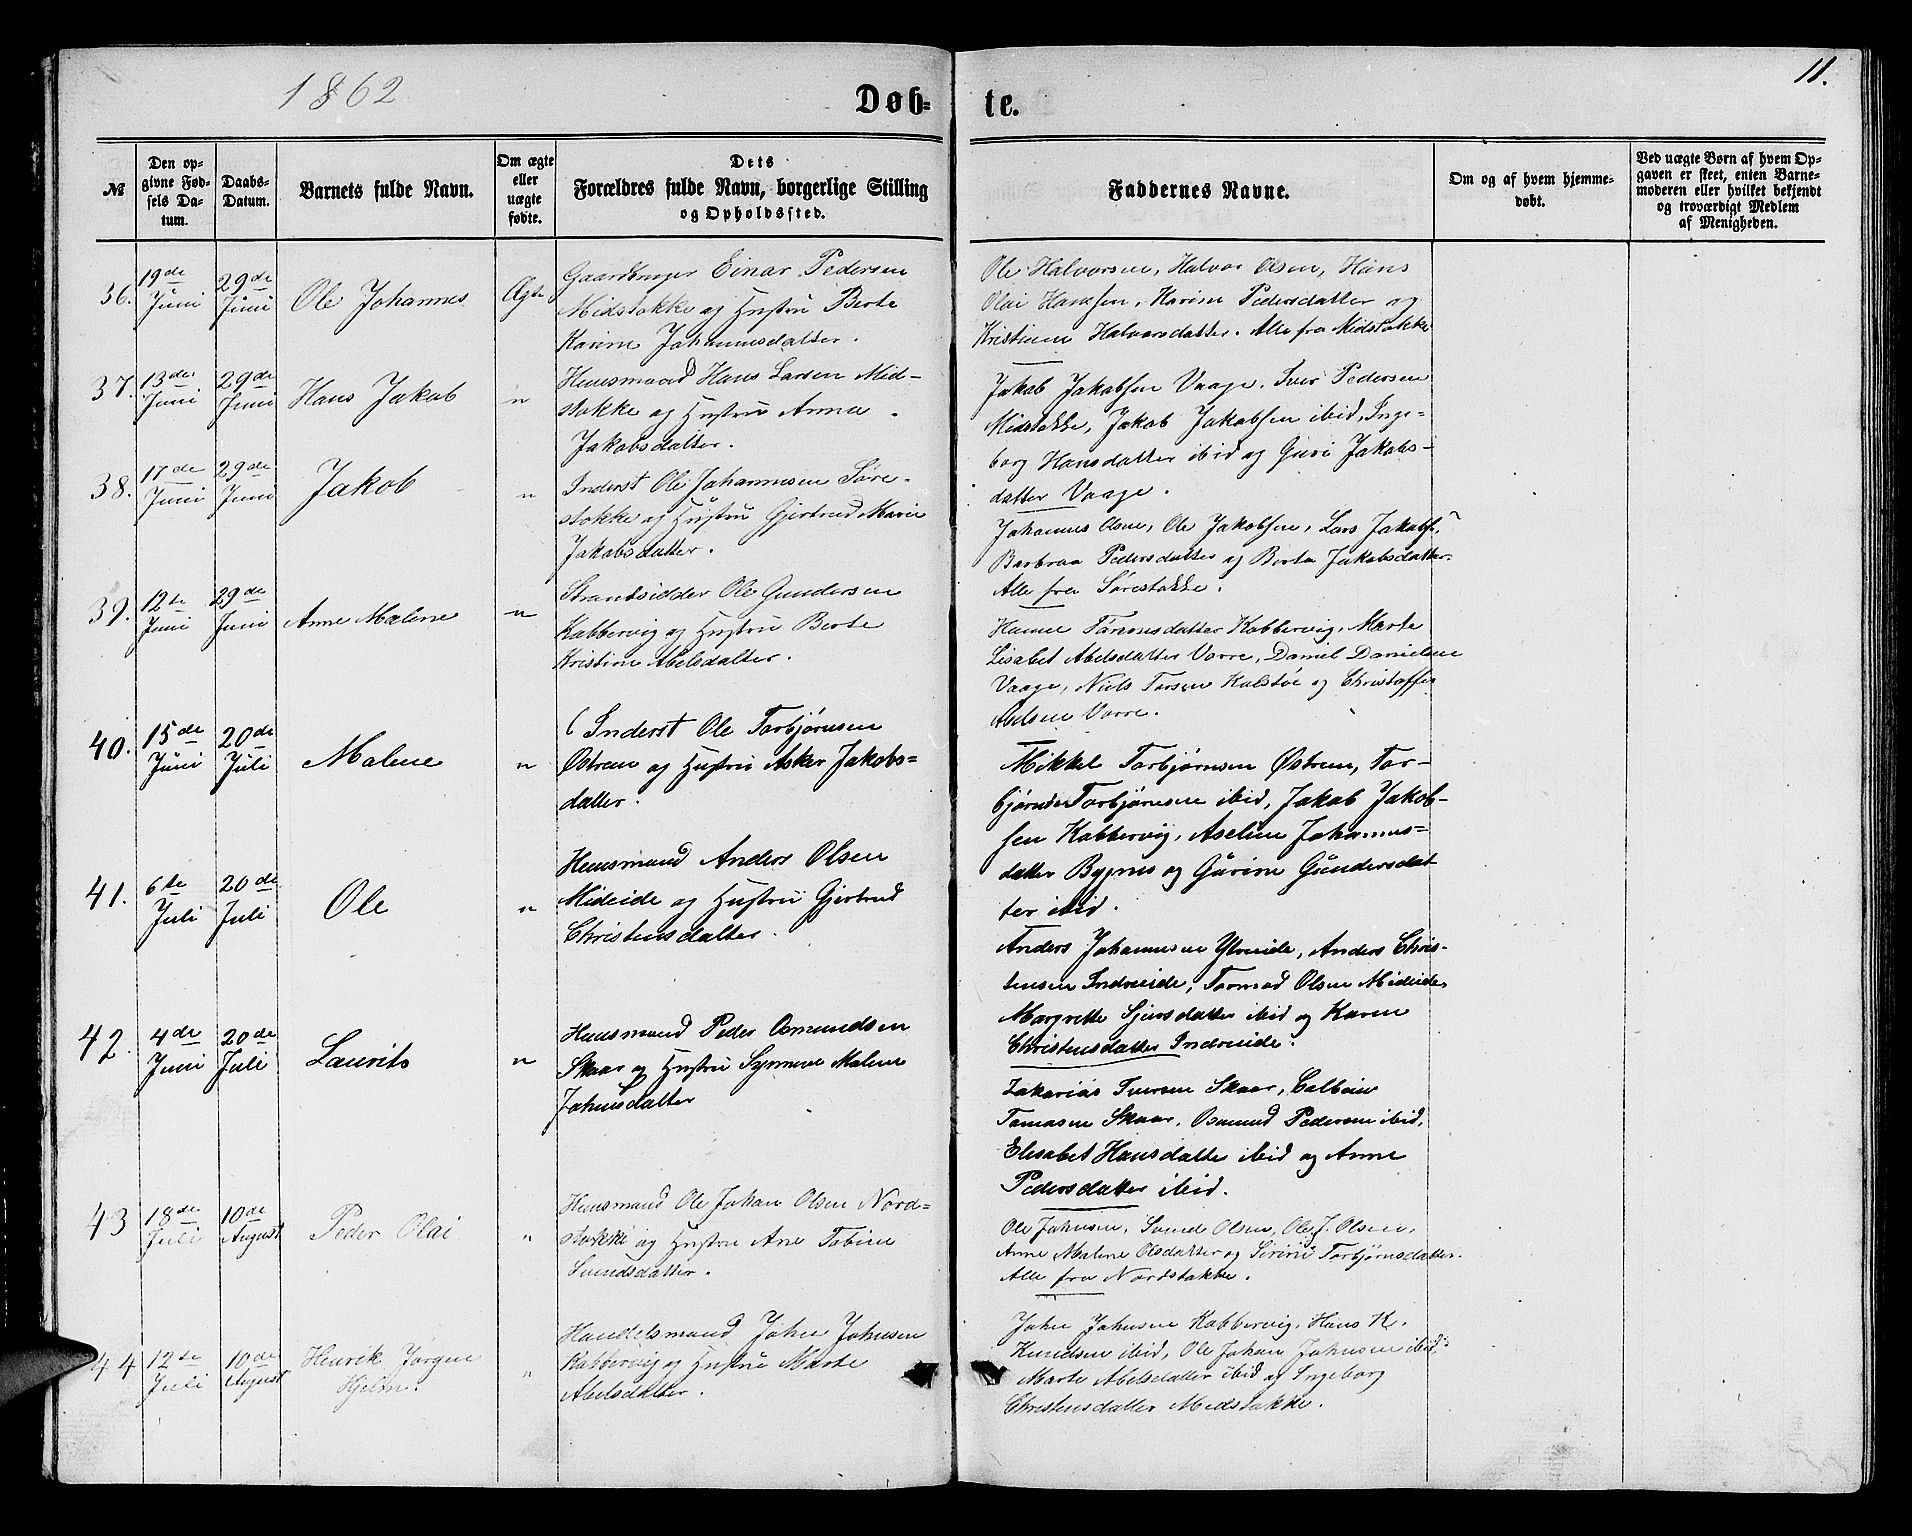 1862
Døb-
te.
11.
№
Den op-
givne Fød-
sels Da-
tum.
Daabs-
Datum.
Barnets fulde Navn.
Om ægte
eller
uægte
fødte.
Dets
Forældres fulde Navn, borgerlige Stilling
og Opholdssted.
Faddernes Navne.
Om og af hvem hjemme-
døbt.
Ved uægte Børn af hvem Op-
gaven er skeet, enten Barne-
moderen eller hvilket bekjendt
og troværdigt Medlem
af Menigheden.
36.
19de
Juni
29de
Juni
Ole Johannes
Ægte
Gaardbruger Einar Pedersen
Midstokke og Hustru Berte
Karine Johannesdatter.
Ole Halvorsen, Halvor Olsen, Hans
Olai Hansen, Karine Pedersdatter og
Kristiane Halvorsdatter. Alle fra Midstokke
37.
13de
Juni
29de
Juni
Hans Jakob
"
Huusmand Hans Larsen Mid-
stokke og Hustru Anna
Jakobsdatter.
Jakob Jakobsen Vaage, Iver Pedersen
Midstokke, Jakob Jakobsen ibid, Inge-
borg Hansdatter ibid og Guri Jakobs-
datter Vaage.
38.
17de
Juni
29de
Juni
Jakob
"
Inderst Ole Johannesen Søre-
stokke og Hustru Gjertrud Marie
Jakobsdatter.
Johannes Olsen, Ole Jakobsen, Lars Jakobs.
Barbraa Pedersdatter og Berta Jakobsdatter.
Alle fra Sørestokke.
39.
12te
Juni
29de
Juni
Anne Malene
"
Strandsidder Ole Gundersen
Kobbervig og Hustru Berte
Kristine Abelsdatter.
Hanne Tønnesdatter Kobbervig, Marte
Lisabet Abelsdatter Vorre, Daniel Danielsen
Vaage, Niels Torsen Kolstøe og Christoffer
Abelsen Vorre.
40.
15de
Juni
20de
Juli
Malene
"
Inderst Ole Torbjørnsen
Østrem og Hustru Asker Jakobs-
datter.
Mikkel Torbjørnsen Østrem, Tor-
bjørn Torbjørnsen ibid, Jakob Jakob-
sen Kobbervig, Aseline Johannes-
datter Bygnes og Gurine Gundersdat-
ter ibid.
41.
6te
Juli
20de
Juli
Ole
"
Huusmand Anders Olsen
Mideide og Hustru Gjertrud
Christensdatter.
Anders Johannesen Ytreeide, Anders Chris-
tensen Indreeide, Tormod Olsen Mideide,
Margrette Sjursdatter ibid og Karen
Christensdatter Indreeide.
42.
4de
Juni
20de
Juli
Laurits
"
Huusmand Peder Osmundsen
Skaar og Hustru Synneve Malene
Johnsdatter
Zakarias Iversen Skaar, Colbein
Tomasen Skaar, Osmund Pedersen ibid,
Elisabet Hansdatter ibid og Anne
Pedersdatter ibid.
43
18de
Juli
10de
August
Peder Olai
"
Huusmand Ole Johan Olsen Nord-
stokke og Hustru Ane Tobine
Svendsdatter.
Ole Johnsen, Svend Olsen, Ole J. Olsen,
Anne Malene Olsdatter og Sirine Torbjørnsdatter.
Alle fra Nordstokke.
44
12te
Juli
10de
August
Henrik Jørgen
Hjelm.
"
Handelsmand John Johnsen
Kobbervig og Hustru Marte
Abelsdatter.
John Johnsen Kobbervig, Hans K.
Knudsen ibid, Ole Johan Johnsen ibid.
Marte Abelsdatter ibid og Ingeborg
Christensdatter Midstokke.